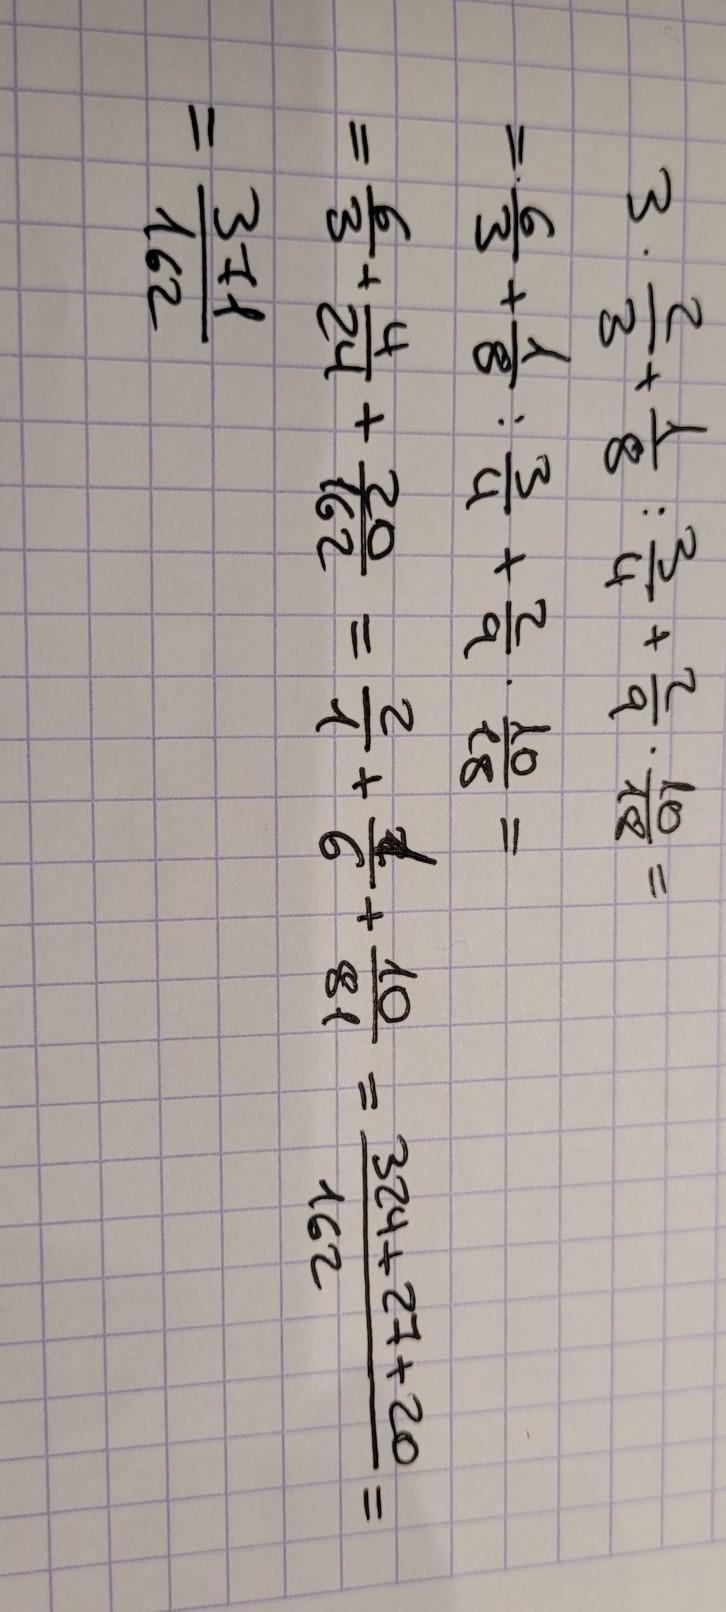 3 · 2/3 + 1/8 : 3/4 + 2/9 · 10/18 =
= 6/3 + 1/8 : 3/4 + 2/9 · 10/18 =
= 6/3 + 4/24 + 20/162 = 2/1 + 1/6 + 10/81 = (324+27+20)/162 =
= 371/162